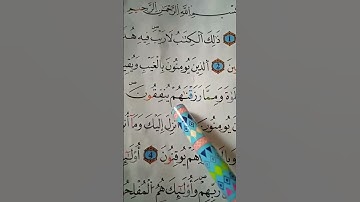 بِسْمِ اللَّهِ الرَّحْمَٰنِ الرَّحِيمِ
ذَٰلِكَ الْكِتَابُ لَا رَيْبَ ۛ فِيهِ
الَّذِينَ يُؤْمِنُونَ بِالْغَيْبِ
وَمِمَّا رَزَقْنَاهُمْ يُنفِقُونَ
أُنزِلَ إِلَيْكَ وَمَا
يُوقِنُونَ
رَّبِّهِمْ ۖ وَأُولَٰئِكَ هُمُ الْمُفْلِحُ